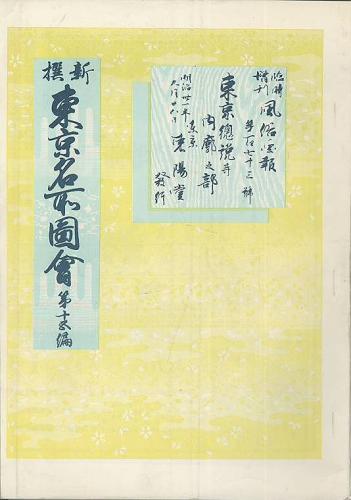 臨時
増刊
風俗画報
第百七十三號
東京總説并
内廓之部
明治卅一年
九月廿五日
東京
東陽堂
發行
新撰
東京名所圖會
第十五編